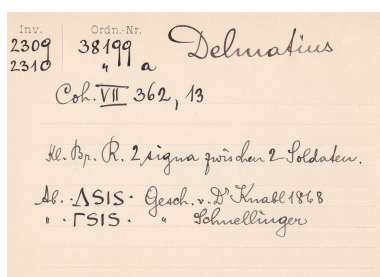 Inv. Ordn.-Nr.
2309 38199 Delmatius
2310 " a
Coh. VII 362, 13
Kl. Br. R. 2 signa zwischen 2 Soldaten.
Ab. · ΛSIS · Gesch. v. Dr Knabl 1868
" · ΓSIS · " Schnellinger